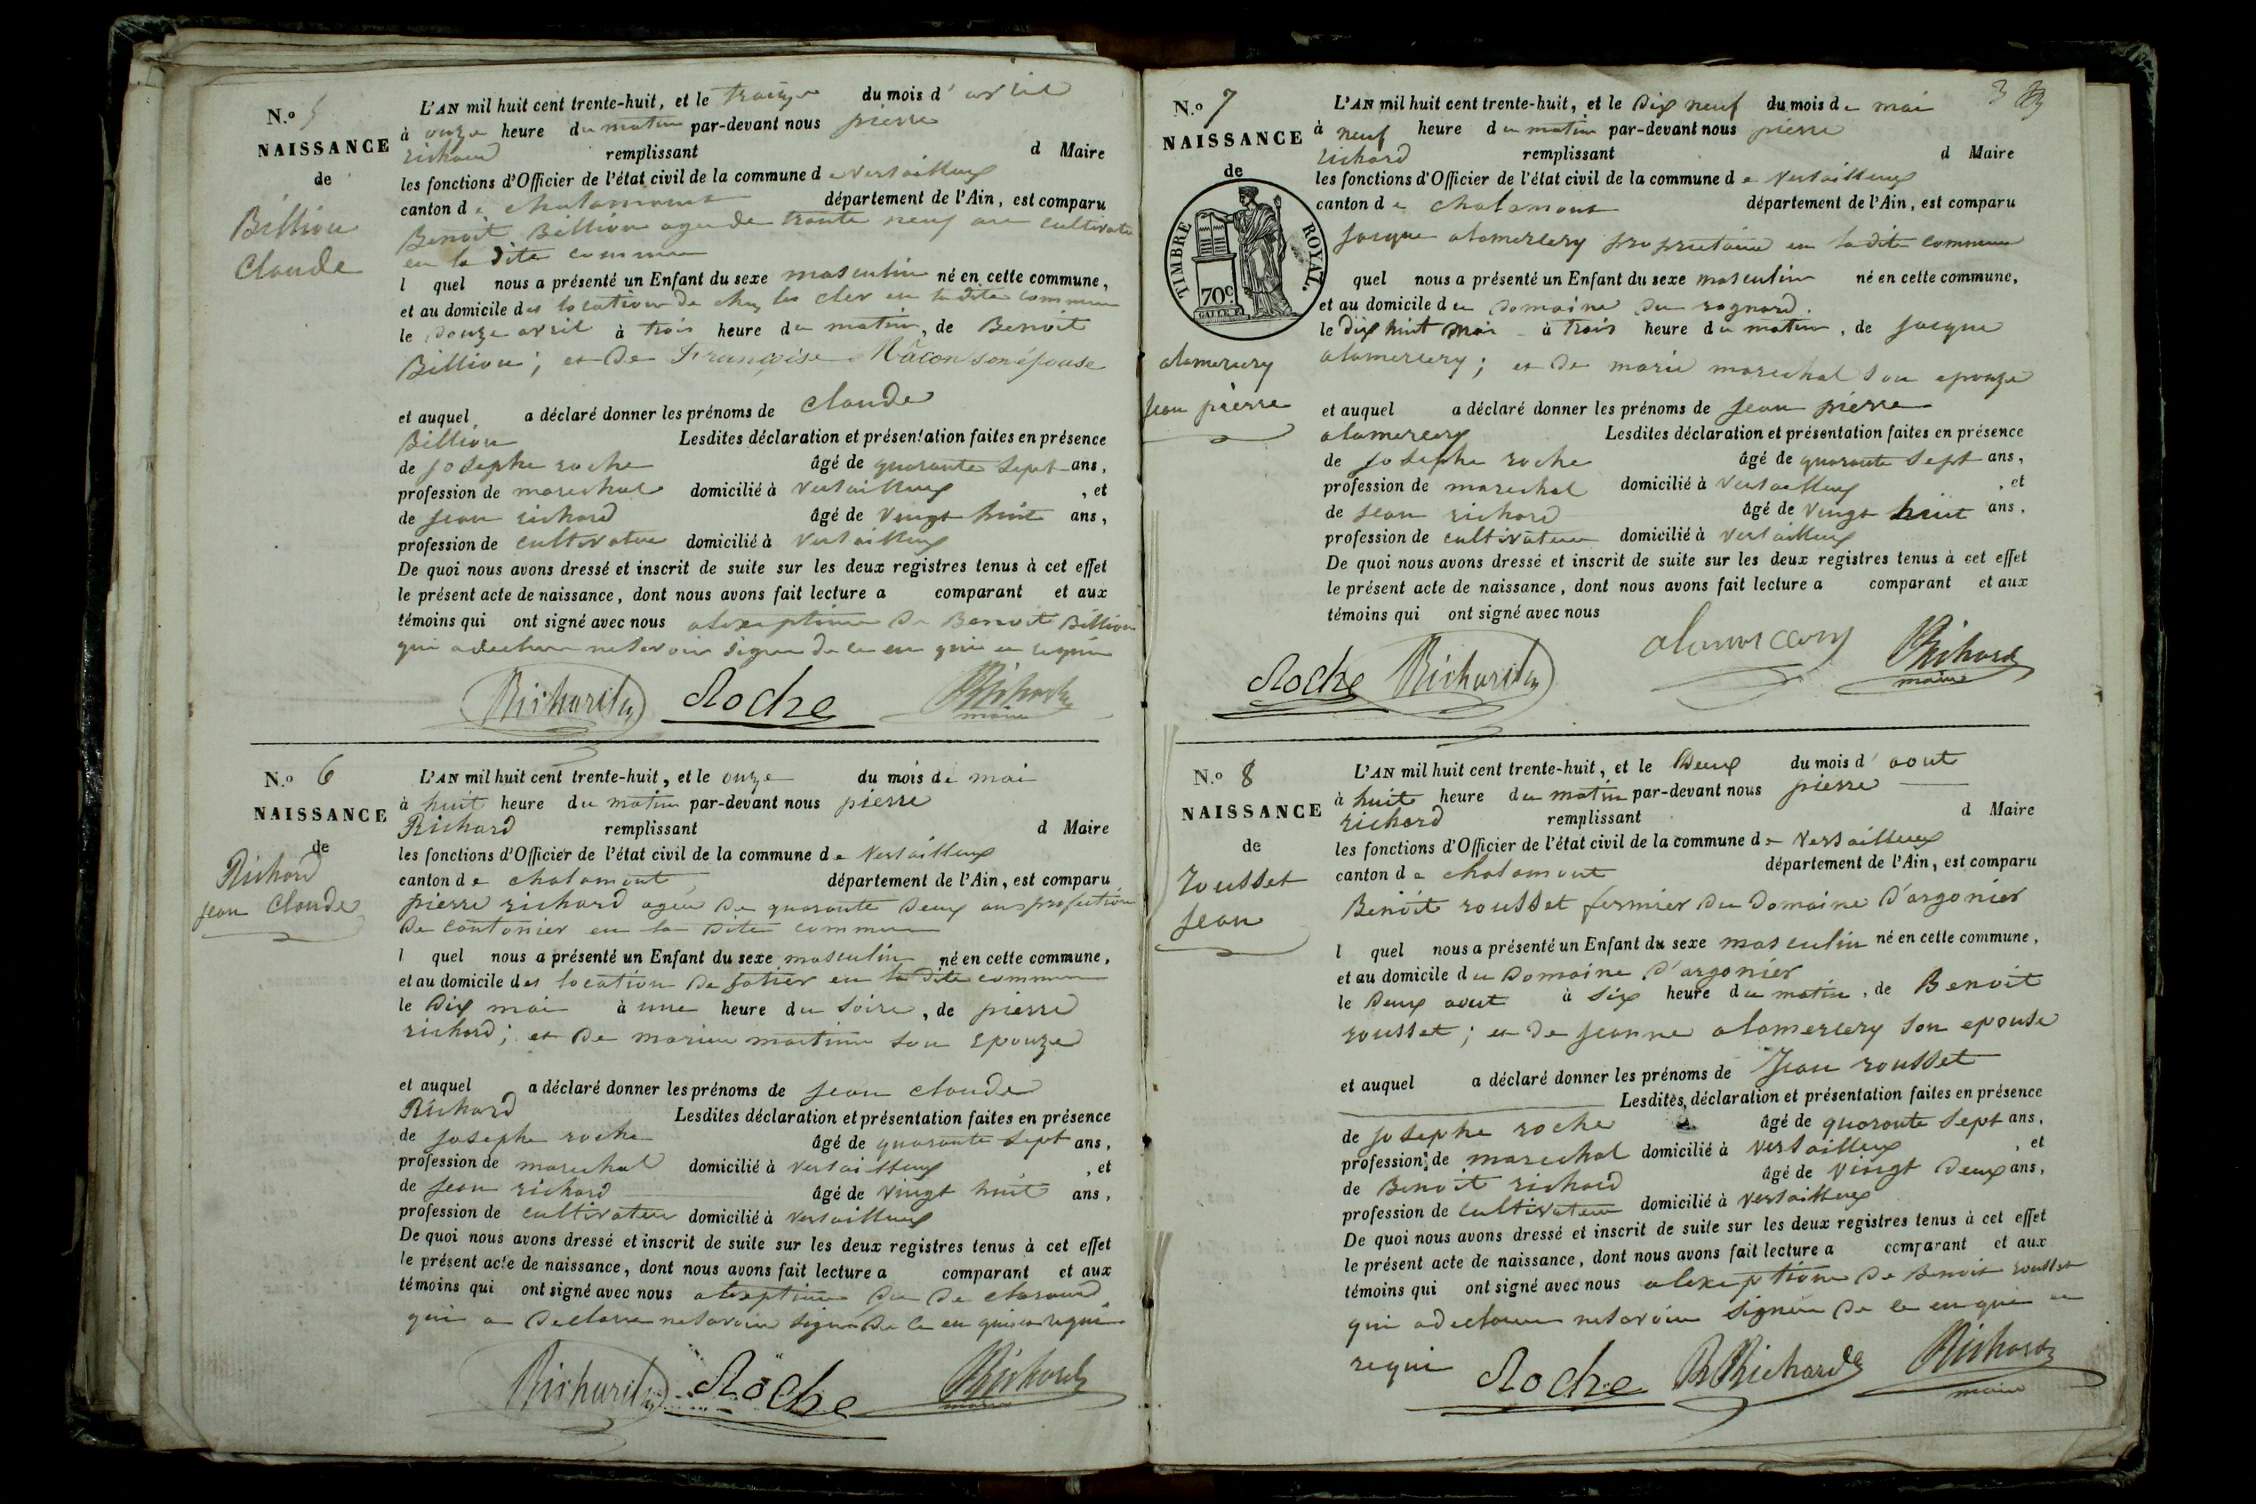 N.o 5
NAISSANCE
de
Billion
Claude
L'AN mil huit cent trente-huit, et le treize du mois d'avril
à onze heure du matin par-devant nous pierre
richard remplissant d Maire
les fonctions d'Officier de l'état civil de la commune de versailleux
canton de chalamont département de l'Ain, est comparu
Benoit Billion agée de trante neuf ans cultivateur
en la dite commune
l quel nous a présenté un Enfant du sexe masculin né en cette commune,
et au domicile des location de chez les cler en la dite commune
le douze avril à trois heure du matin, de Benoit
Billion; et de Françoise Mâcon son épouse
et auquel a déclaré donner les prénoms de claude
Billion Lesdites déclaration et présentation faites en présence
de josephe roche âgé de quarante sept ans,
profession de marechal domicilié à versailleux , et
de jean richard âgé de vingt huit ans,
profession de cultivateur domicilié à versailleux
De quoi nous avons dressé et inscrit de suite sur les deux registres tenus à cet effet
le présent acte de naissance, dont nous avons fait lecture a comparant et aux
témoins qui ont signé avec nous alexeption de Benoit Billion
qui adeclare nesavoir signer de ce en qui
Richard Roche Richard
maire
N.o 6
NAISSANCE
de
Richard
jean Claude
L'AN mil huit cent trente-huit, et le onze du mois de mai
à huit heure du matin par-devant nous pierre
Richard remplissant d Maire
les fonctions d'Officier de l'état civil de la commune de versailleux
canton de chalamont département de l'Ain, est comparu
pierre richard agée de quarante deux ans profection
de cantonier en la dite commune
l quel nous a présenté un Enfant du sexe masculin né en cette commune,
et au domicile des location de en la dite commune
le dix mai à une heure du soire, de pierre
richard; et de marie martinne son epouze
et auquel a déclaré donner les prénoms de jean claude
Richard Lesdites déclaration et présentation faites en présence
de josephe roche âgé de quarante sept ans,
profession de marechal domicilié à versailleux , et
de jean richard âgé de vingt huit ans,
profession de cultivateur domicilié à versailleux
De quoi nous avons dressé et inscrit de suite sur les deux registres tenus à cet effet
le présent acte de naissance, dont nous avons fait lecture a comparant et aux
témoins qui ont signé avec nous alexeption du de
qui a declare nesavoir signer de ce en qui
Richard Roche Richard
maire
3
N.o 7
NAISSANCE
de
TIMBRE ROYAL.
70c
alamercery
jean pierre
L'AN mil huit cent trente-huit, et le dix neuf du mois de mai
à neuf heure du matin par-devant nous pierre
richard remplissant d Maire
les fonctions d'Officier de l'état civil de la commune de versailleux
canton de chalamont département de l'Ain, est comparu
jacque alamercery proprietaire en la dite commune
quel nous a présenté un Enfant du sexe masculin né en cette commune,
et au domicile du domaine du rognard.
le dix huit mai à trois heure du matin, de jacque
alamercery; et de marie marechal son epouze
et auquel a déclaré donner les prénoms de jean pierre
alamercery Lesdites déclaration et présentation faites en présence
de josephe roche âgé de quarante sept ans,
profession de marechal domicilié à versailleux , et
de jean richard âgé de vingt huit ans,
profession de cultivateur domicilié à versailleux
De quoi nous avons dressé et inscrit de suite sur les deux registres tenus à cet effet
le présent acte de naissance, dont nous avons fait lecture a comparant et aux
témoins qui ont signé avec nous
Roche Richard Richard
maire
N.o 8
NAISSANCE
de
rousset
jean
L'AN mil huit cent trente-huit, et le deux du mois d'aout
à huit heure du matin par-devant nous pierre
richard remplissant d Maire
les fonctions d'Officier de l'état civil de la commune de versailleux
canton de chalamont département de l'Ain, est comparu
Benoit rousset fermier du domaine d'argonier
l quel nous a présenté un Enfant du sexe masculin né en cette commune,
et au domicile du domaine d'argonier
le deux aout à six heure du matin, de Benoit
rousset; et de jeanne alamercery son epouse
et auquel a déclaré donner les prénoms de jean rousset
Lesdites déclaration et présentation faites en présence
de josephe roche âgé de quarante sept ans,
profession de marechal domicilié à versailleux , et
de Benoit richard âgé de vingt deux ans,
profession de cultivateur domicilié à versailleux
De quoi nous avons dressé et inscrit de suite sur les deux registres tenus à cet effet
le présent acte de naissance, dont nous avons fait lecture a comparant et aux
témoins qui ont signé avec nous alexeption de Benoit rousset
qui adeclare nesavoir signer de ce en qui
requi Roche B Richard Richard
maire